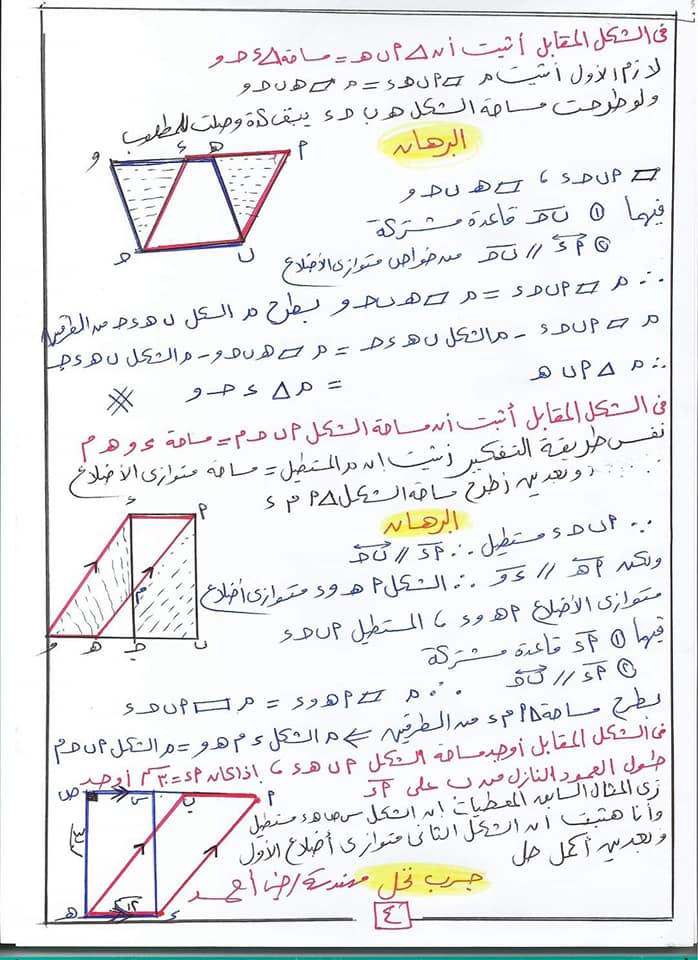 فى الشكل المقابل أثبت أن △ أ ب هـ = مساحة △ ء حـ و
لازم الأول أثبت م ▱ أ ب حـ ء = م ▱ هـ ب حـ و
ولو طرحت مساحة الشكل هـ ب حـ ء يبقى كدة وصلت للمطلوب
البرهان
▱ أ ب حـ ء ، ▱ هـ ب حـ و
فيهما ① ب حـ قاعدة مشتركة
② أ ء // ب حـ من خواص متوازى الأضلاع
∴ م ▱ أ ب حـ ء = م ▱ هـ ب حـ و بطرح م الشكل ب هـ ء حـ من الطرفين
م ▱ أ ب حـ ء - م الشكل ب هـ ء حـ = م ▱ هـ ب حـ و - م الشكل ب هـ ء حـ
∴ م △ أ ب هـ = م △ ء حـ و
فى الشكل المقابل أثبت أن مساحة الشكل أ ب حـ م = مساحة ء و هـ م
نفس طريقة التفكير نثبت ان م المستطيل = مساحة متوازى الأضلاع
وبعدين نطرح مساحة الشكل △ أ م ء
البرهان
∵ أ ب حـ ء مستطيل ∴ أ ء // ب حـ
ولكن أ هـ // ء و ∴ الشكل أ هـ و ء متوازى أضلاع
متوازى الأضلاع أ هـ و ء ، المستطيل أ ب حـ ء
فيهما ① أ ء قاعدة مشتركة
② أ ء // ب حـ
∴ م ▱ أ هـ و ء = م ▭ أ ب حـ ء
بطرح مساحة △ أ م ء من الطرفين ⇐ م الشكل ء م هـ و = م الشكل أ ب حـ م
فى الشكل المقابل أوجد مساحة الشكل أ ب هـ ء ، إذا كان أ ء = ٣٠ سم أوجد
طول العمود النازل من ب على أ ء
زى المثال السابق المعطيات ان الشكل س ص هـ ء مستطيل
وأنا هثبت أن الشكل الثانى متوازى أضلاع الأول
وبعدين أكمل حل
جرب تحل
٤
أ
هـ
ء
و
حـ
ب
ء
أ
م
و
هـ
حـ
ب
ص
س
ب
أ
هـ
ء